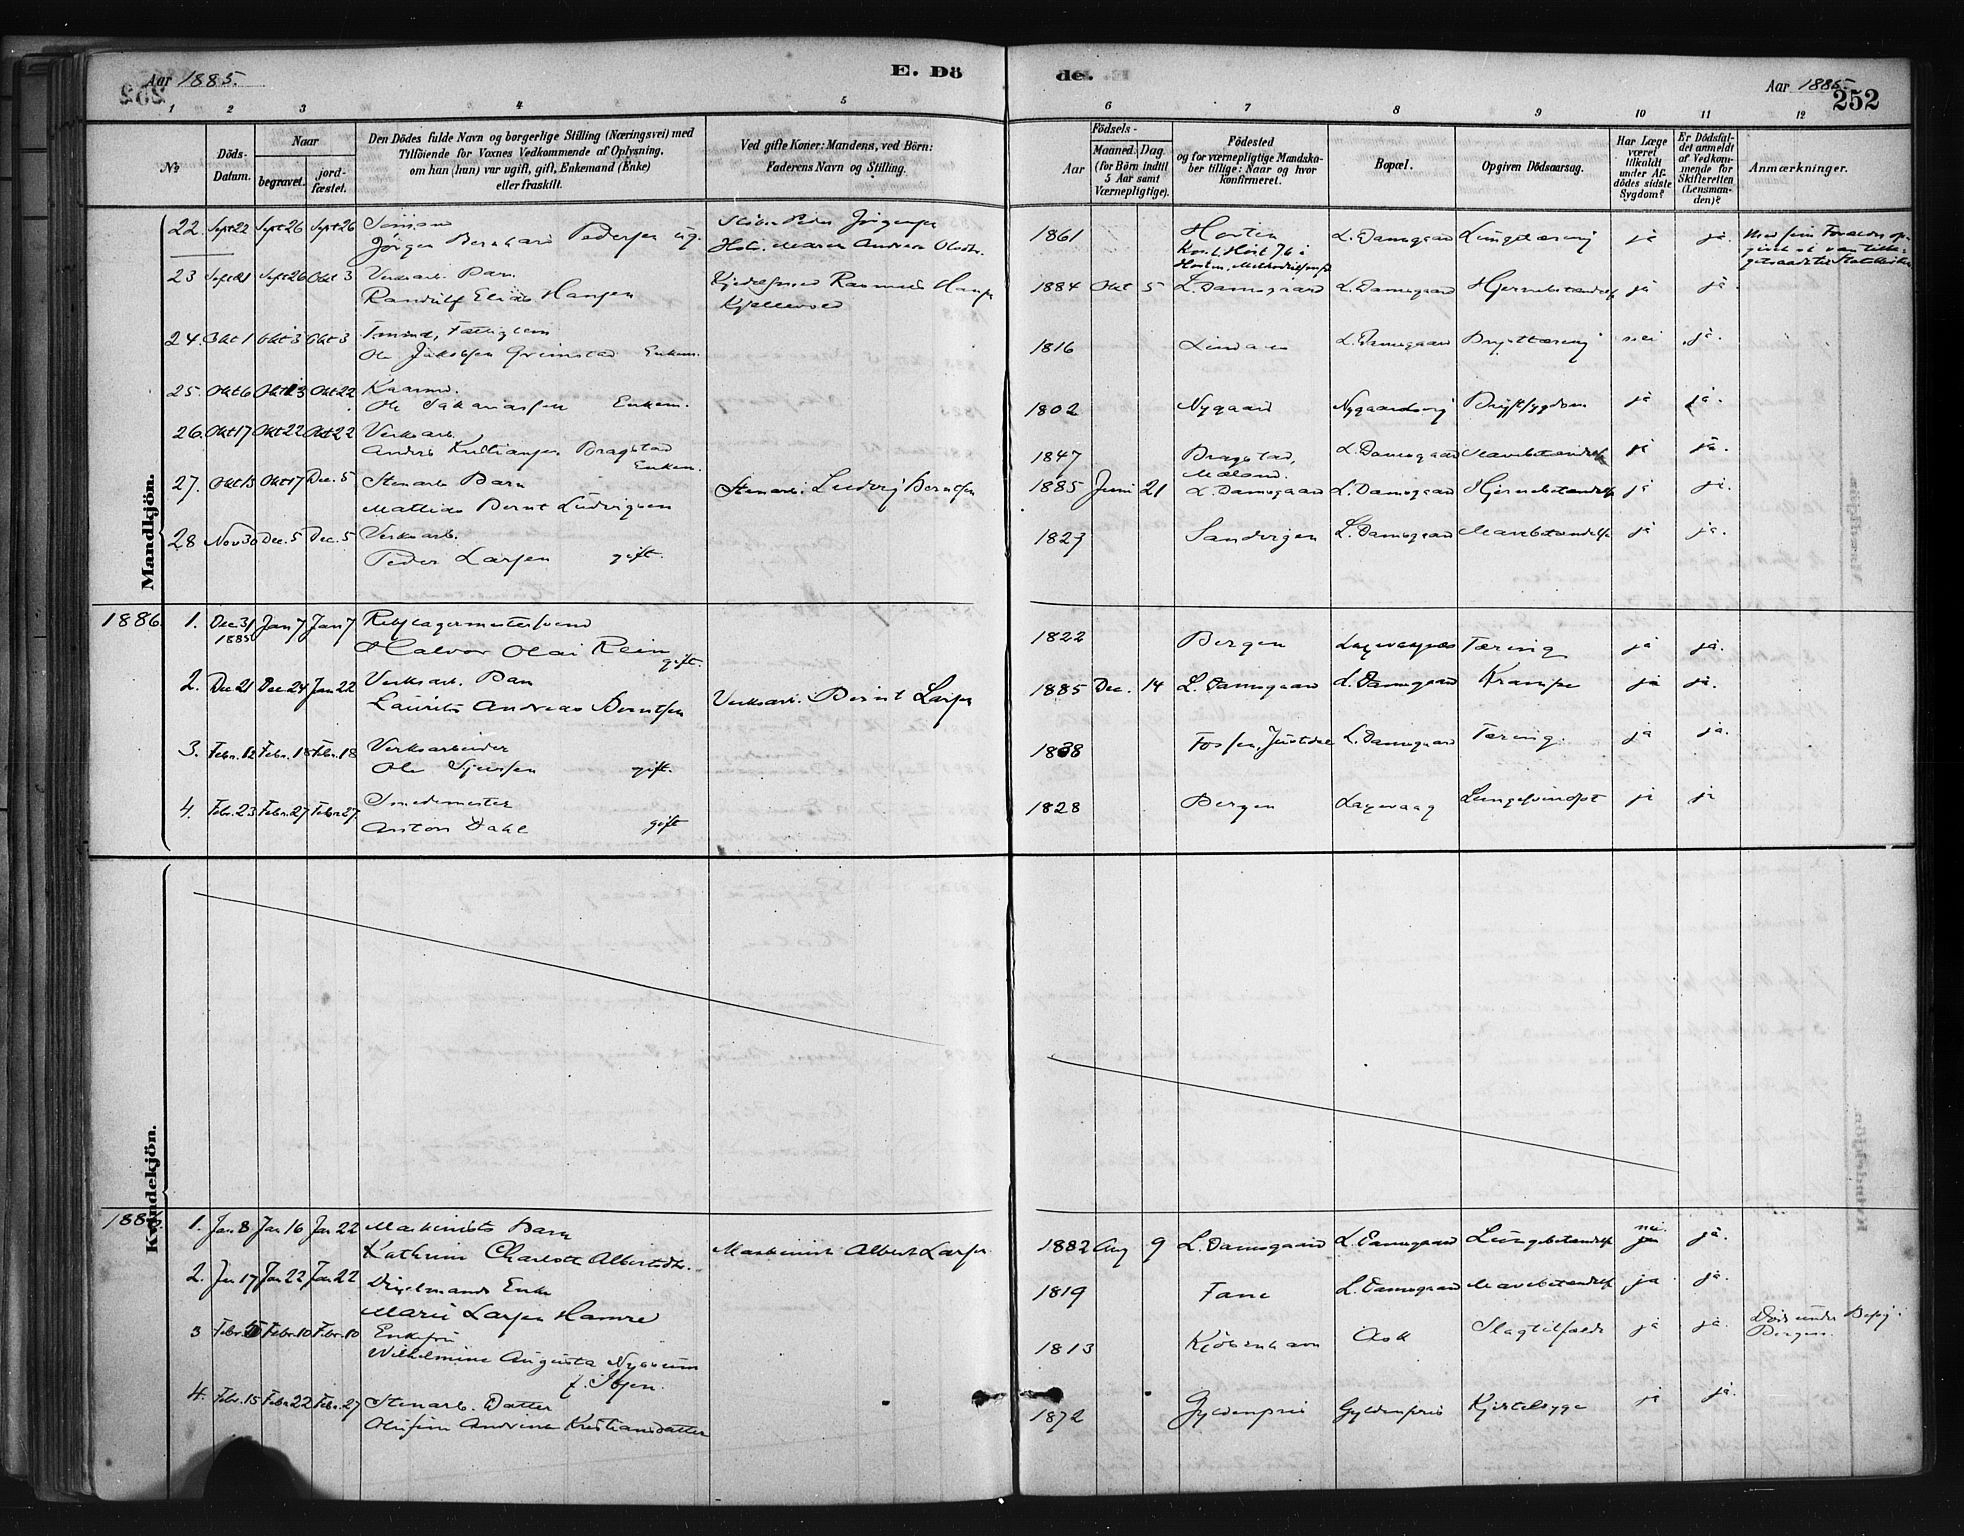 Aar 1885.
E. Dö
de.
Aar 1885.
252
1 2 3 4 5 6 7 8 9 10 11 12
No
Döds-Datum.
Naar
begravet.
jord-fæstet.
Den Dödes fulde Navn og borgerlige Stilling (Næringsvei) med
Tilföiende for Voxnes Vedkommende af Oplysning,
om han (hun) var ugift, gift, Enkemand (Enke)
eller fraskilt.
Ved gifte Koner: Mandens, ved Börn:
Faderens Navn og Stilling.
Födsels-
Aar
Maaned. Dag
(for Börn indtil
5 Aar samt
Værnepligtige).
Födested
og for værnepligtige Mandska-
ber tillige: Naar og hvor
konfirmeret.
Bopæl.
Opgiven Dödsaarsag.
Har Læge
været
tilkaldt
under Af-
dödes sidste
Sygdom?
Er Dödsfal-
det anmeldt
af Vedkom-
mende for
Skifteretten
(Lensman-
den)?
Anmærkninger.
Mandkjön.
22. Sept 22 Sept 26 Sept 26 Sömand
Jørgen Bernhard Pedersen ug. Peder Jørgensen
Maren Andrea Olsdtr. 1861 Horten L. Damsgaard Lungetæring ja ja.
23 Sept 21 Sept 26 Okt 3 Verksarb. Barn
Randulf Elias Hansen Rasmus Hansen
Kjellevold 1884 Okt 5 L. Damsgaard L. Damsgaard Hjernebetændelse ja ja.
24. Okt 1 Okt 3 Okt 3
Ole Jakobsen Grimstad Enkem. 1816 Lindaas L. Damsgaard Brysttæring nei ja.
25. Okt 6 Okt 13 Okt 22 Kaarmd.
Ole Sakariassen Enkem. 1802 Nygaard Nygaardsvig Brystsygdom ja ja.
26. Okt 17 Okt 22 Okt 22 Verksarb.
Anders Kristiansen Bragstad
Enkem. 1847 Bragstad,
L. Damsgaard Mavebetændelse ja ja.
27. Okt 13 Okt 17 Dec. 5 Stenarb. Barn
Mathias Bernt Ludvigsen Stenarb. Ludvig Berntsen 1885 Juni 21 L. Damsgaard L. Damsgaard Hjernebetændelse ja ja.
28 Nov 30 Dec. 5 Dec. 5 Verksarb.
Peder Larsen gift. 1827 Sandvigen L. Damsgaard Mavebetændelse ja ja.
1886. 1. Dec 31 1885 Jan 7 Jan 7 Rebslagermestersvend
Halvor Olai Rein gift. 1822 Bergen Laxevaagnæs Tæring ja ja.
2. Dec 21 Dec 24 Jan 22 Verksarb. Barn
Laurits Andreas Berntsen Verksarb. Bernt Larsen 1885 Dec. 14 L. Damsgaard L. Damsgaard Krampe ja ja.
3. Febr. 12 Febr. 18 Febr. 18 Verksarbeider
Ole gift. 1838 Fossen, Justdal L. Damsgaard Tæring. ja ja.
4. Febr. 23 Febr. 27 Febr. 27 Smedemester
Anton Dahl gift 1828 Bergen Laxevaag ja ja
Kvindekjön.
1886. 1. Jan 8. Jan 16 Jan 22 Maskinists Barn
Kathrine Charlotte Albertsdtr. Maskinist Albert Larsen 1882 Aug 9 L. Damsgaard L. Damsgaard Lungebetændelse nei ja.
2. Jan 17 Jan 22 Jan 22 Enke
Marie Larsen Hamre 1819 Fane L. Damsgaard Mavebetændelse ja ja.
3 Febr. 5 Febr. 10 Febr. 10 Enkefru
Wilhelmine Augusta
f. Ibsen. 1813 Kjøbenhavn Ask Slagtilfælde ja ja. Døde under Besøg i
Bergen.
4. Febr. 15 Febr. 22 Febr. 27 Stenarb. Datter
Andrine Kristiansdatter 1872 Gyldenpris Gyldenpris Kjertelsyge ja ja.